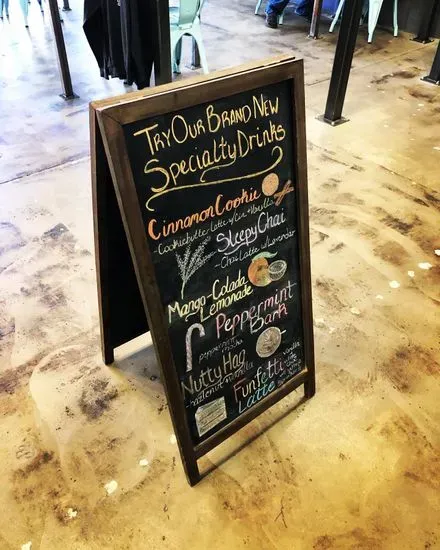 Try Our Brand New
Specialty Drinks
Cinnamon Cookie
- Cookie butter latte w/ cin + vanilla
Sleepy Chai
- Chai Latte w/ Lavender
Mango-Colada
Lemonade
Peppermint
Bark
peppermint
mocha
Nutty Hag
- hazelnut
Funfetti
Latte
vanilla